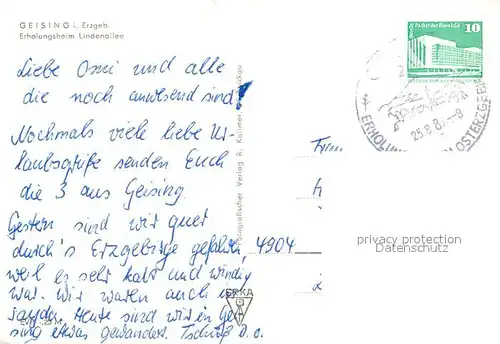 GEISING i. Erzgeb.
Erholungsheim Lindenallee
Palast der Republik
10
25.8.8
ERHOLUN
OSTERZGEB
Liebe Omi und alle
die noch anwesend sind!
Nochmals viele liebe Ur-
laubsgrüße senden Euch
die 3 aus Geising.
Gestern sind wir quer
durch's Erzgebirge gefahren,
weil es sehr kalt und windig
war. Wir waren auch in
sayda. Heute sind wir in Gei
sing etwas gewandert. Tschüß
4904
Fotografischer Verlag R. Kallmer,
ERKA
privacy protection
Datenschutz